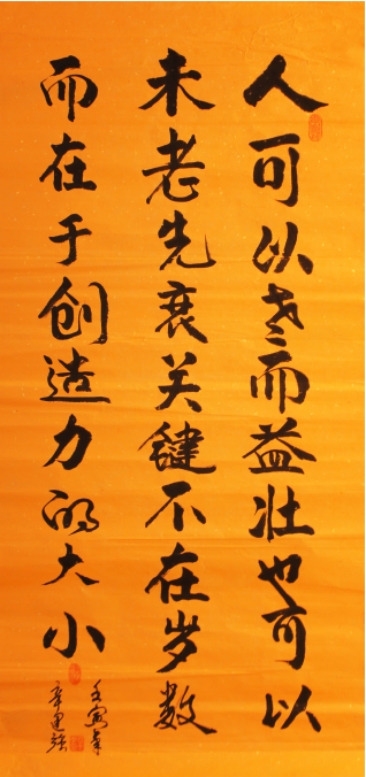 人可以老而益壮也可以
未老先衰关键不在岁数
而在于创造力的大小
壬寅年
辛建强